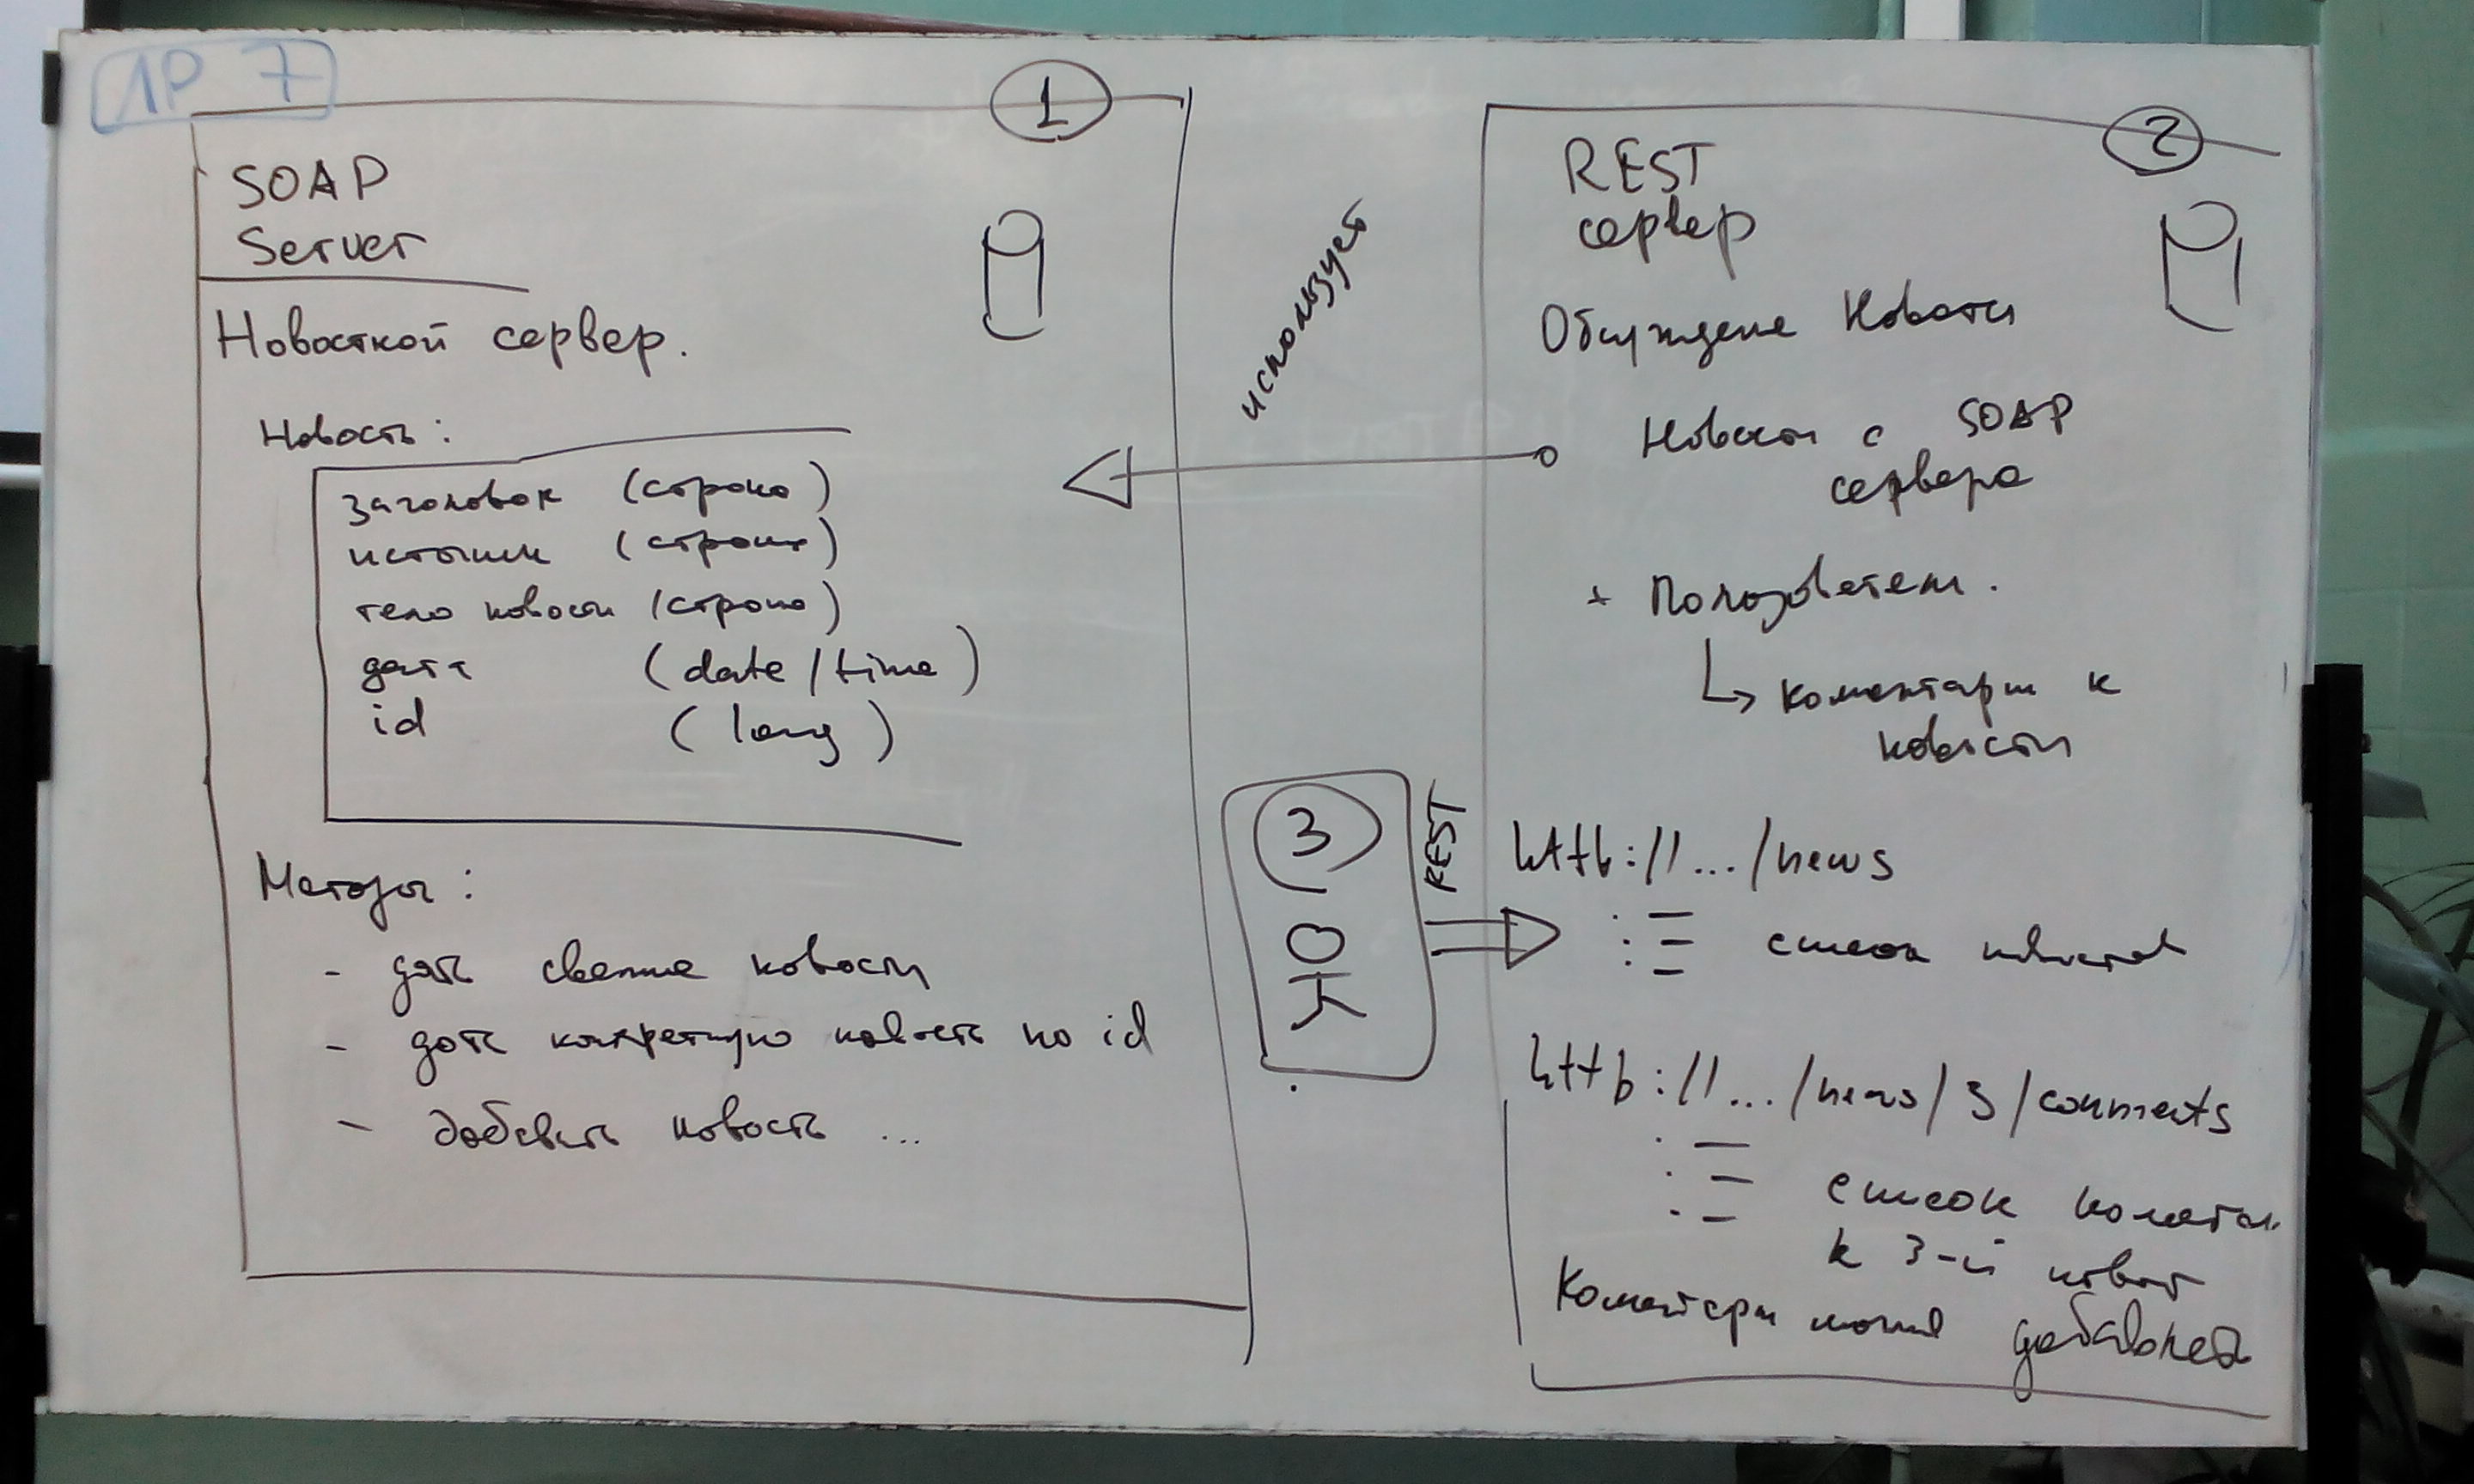 ЛР 7
1
SOAP
Server
Новосткой сервер.
Новость:
заголовок (строка)
источник (строка)
тело новости (строка)
дата (date/time)
id (long)
Методы:
- дать свежие новости
- дать конкретную новость по id
- добавить новость ...
использует
3
REST
2
REST
сервер
Обсуждение Новости
Новости с SOAP
сервера
+ Пользователи.
коментарии к
новости
http://.../news
список новостей
http://.../news/3/comments
список
к 3-й новости
Коментарии можно добавлять